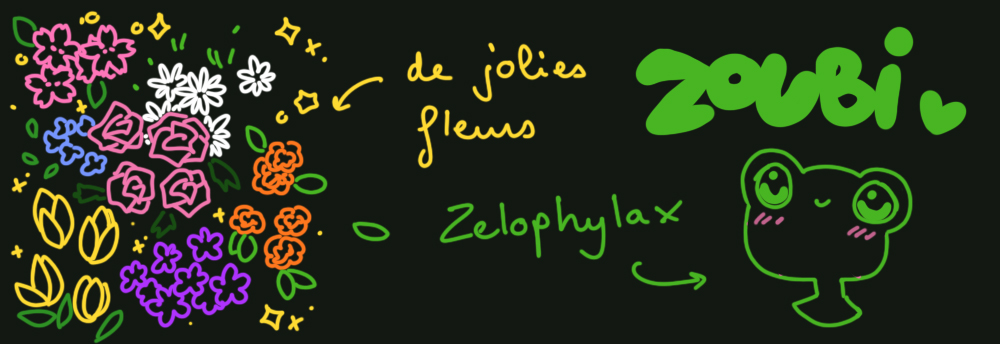 de jolies
fleurs
ZOUBi
Zelophylax